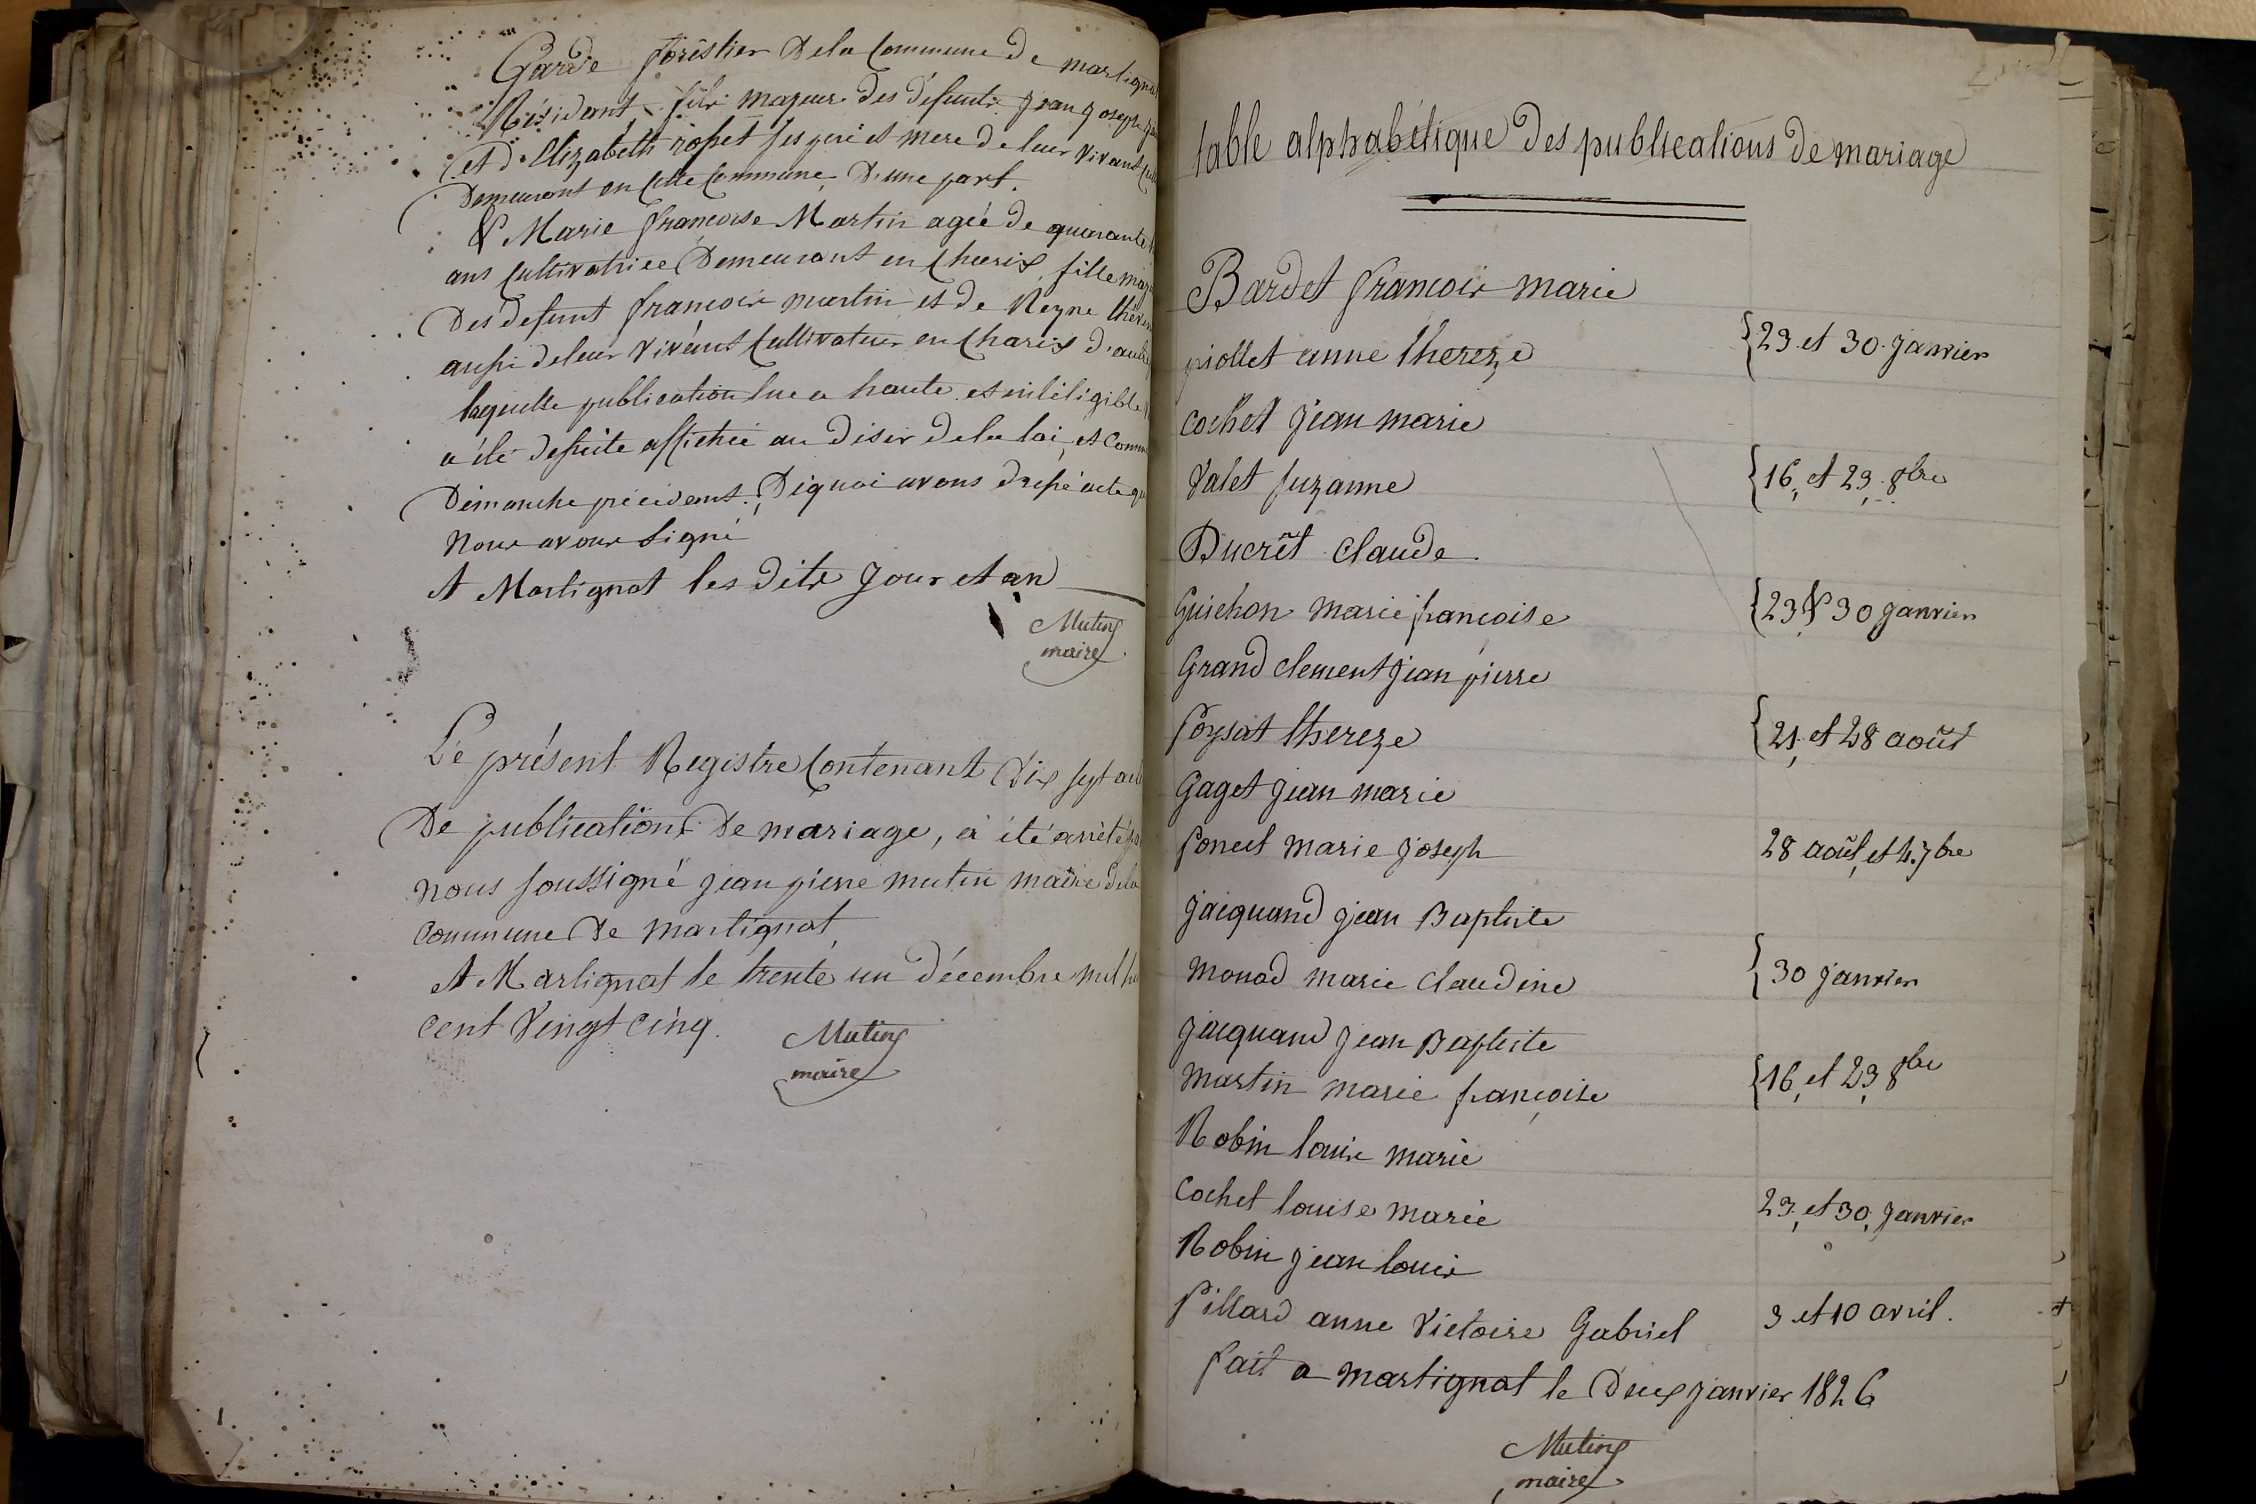 Garde forestier de la Commune de martignat
Résidant fils majeur des défunts jean joseph
et d'Elizabeth ropet ses peré et mere de leur vivant
Demeurant en Cette Commune, D'une part.
& Marie françoise Martin agée de quarante
ans Cultivatrice Demeurant en Charix, fille
Des defunt francois martin et de Reyne
aussi de leur vivant Cultivateur en Charix d'autre
laquelle publication lue a haute et intéligible
a été desuite affichée au disir de la loi, et Comme
Dimanche précédent. Dequoi avons dressé acte que
Nous avons Signé
A Martignat les dits Jour et an
Mutin
maire
Le présent Registre Contenant Dix sept
De publications De mariage, a été arrêté
nous soussigné jean pierre mutin maire dela
Commune De martignat
A Martignat le trente un décembre mil
cent Vingt cinq.
Mutin
maire
table alphabétique des publications de mariage
Bardet francois marie
piollet anne thereze
{23 et 30 janvier
Cochet jean marie
Valet suzanne
{16, et 23, 8bre
Ducrêt claude
Guichon marie françoise
{23 & 30 janvier
Grand clement jean pierre
Poysat thereze
{21, et 28 août
Gaget jean marie
Poncet marie joseph
28 août, et 4 7bre
jacquand jean Baptiste
monod marie claudine
{30 janvier
jacquand jean Baptiste
Martin marie françoise
{16, et 23, 8bre
Robin louis marie
Cochet louise marie
23, et 30, janvier
Robin jean louis
Pillard anne Victoire Gabriel
3 et 10 avril.
fait a martignat le Deux janvier 1826
Mutin
maire